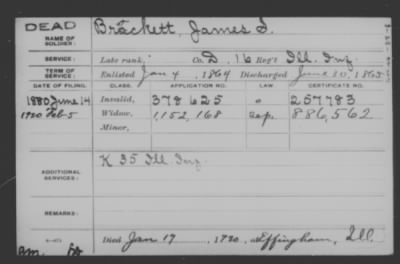 DEAD
NAME OF SOLDIER: Brackett, James S.
SERVICE: Late rank, Co. D, 16 Reg't Ill. Inf.
TERM OF SERVICE: Enlisted Jan 4, 1864 Discharged June 30, 1865
DATE OF FILING. CLASS. APPLICATION NO. LAW CERTIFICATE NO.
1880 June 14 Invalid, 378625 257783
1920 Feb 5 Widow, 1,152,168 886,562
Minor,
ADDITIONAL SERVICES: K 35 Ill. Inf.
REMARKS:
Died Jan 19, 1920, at Effingham, Ill.